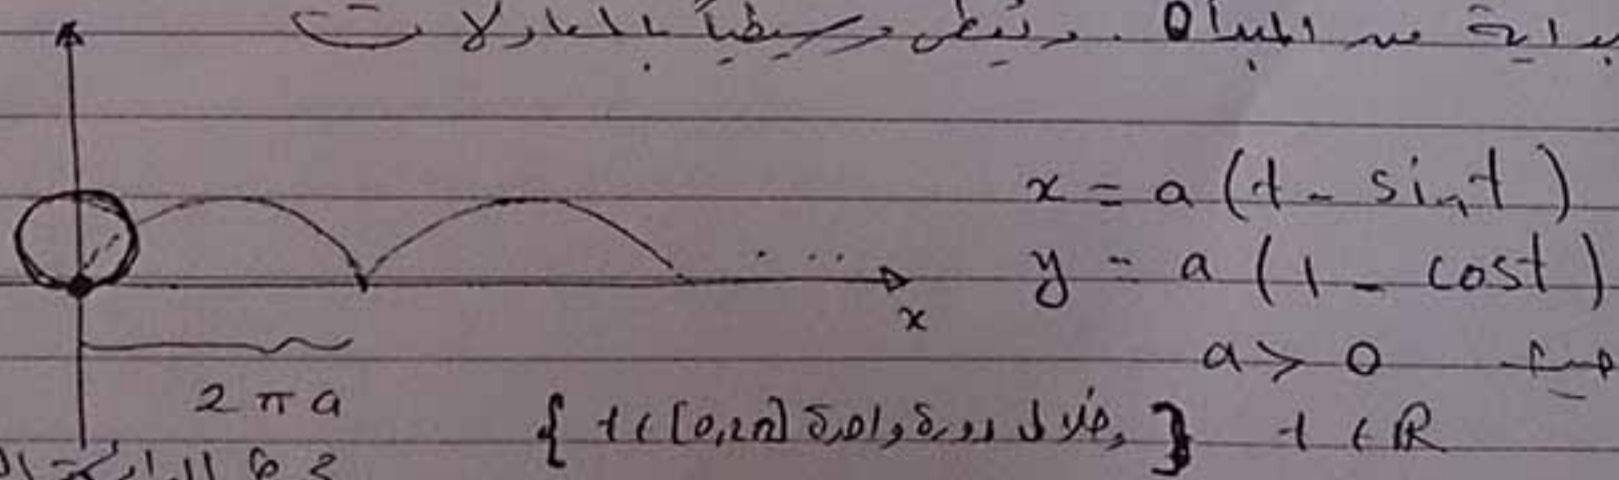 بداية من المبدأ 0. وتعطى وسيطياً بالمعادلات
x = a (t - sin t)
y = a (1 - cost)
x
a > 0 حيث
2πa
{ t ∈ [0,2π] خلال دورة واحدة } t ∈ ℝ